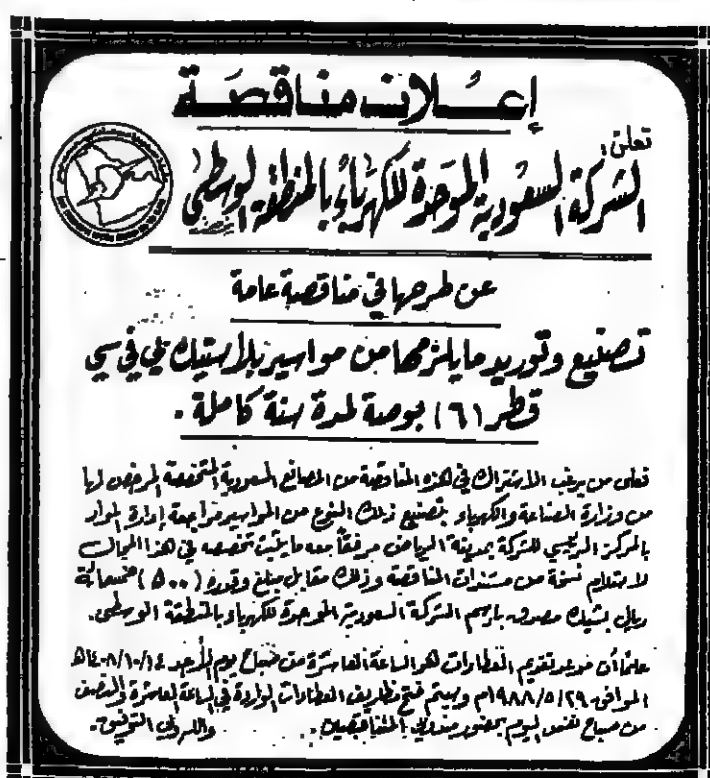 إعلان مناقصة
تعلن:
الشركة السعودية الموحدة للكهرباء بالمنطقة الوسطى
عن طرحها في مناقصة عامة
تصنيع وتوريد ما يلزمها من مواسير بلاستيك پي في سي
قطر (٦) بوصة لمدة سنة كاملة .
فعلى من يرغب الاشتراك في هذه المناقصة من المصانع السعودية المتخصصة المرخص لها
من وزارة الصناعة والكهرباء بتصنيع ذلك النوع من المواسير مراجعة إدارة المواد
بالمركز الرئيسي للشركة بمدينة الرياض مرفقاً معه ما يثبت تخصصه في هذا المجال
لاستلام نسخة من مستندات المناقصة وذلك مقابل مبلغ وقدره (٥٠٠) خمسمائة
ريال بشيك مصدق باسم الشركة السعودية الموحدة للكهرباء بالمنطقة الوسطى .
علماً أن موعد تقديم العطاءات هو الساعة العاشرة من صباح يوم الأحد ١٤٠٨/١٠/١٤هـ
الموافق ١٩٨٨/٥/٢٩م وسيتم فتح مظاريف العطاءات الواردة في الساعة العاشرة والنصف
من صباح نفس اليوم بحضور مندوبي المتناقصين . والله ولي التوفيق .